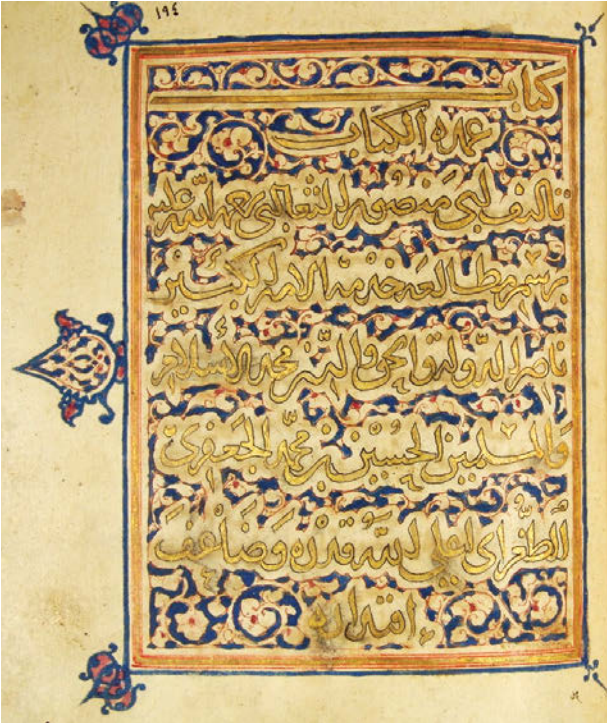 ١٩٤
كتاب
عمدة الكتاب
تأليف أبي منصور الثعالبي رحمة الله عليه
برسم مطالعة خدمة الأمير الكبير
ناصر الدولة والحق والدين مجد الإسلام
والمسلمين الحسين بن محمد الجعفري
الطغرائي أعلى الله قدره وضاعف
اقتداره